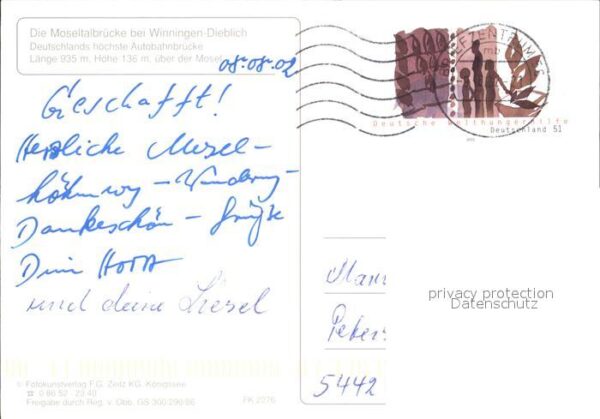 Die Moseltalbrücke bei Winningen-Dieblich
Deutschlands höchste Autobahnbrücke
Länge 935 m, Höhe 136 m, über der Mosel
08.08.02
Geschafft!
Herzliche Mosel-
höhenweg - Wanderung -
Dankeschön - Grüße
Dein Horst
und deine Liesel
BRIEFZENTRUM
Deutsche Welthungerhilfe
Deutschland 51
privacy protection
Datenschutz
5442
© Fotokunstverlag F.G. Zeitz KG. Königssee
☎ 0 86 52 - 23 40
Freigabe durch Reg. v. Obb. GS 300 290/86
PK 2276